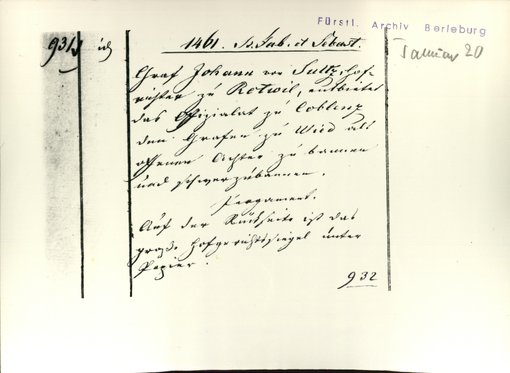 Fürstl. Archiv Berleburg
931
1461. Ss. Fab. et Sebast.
Januar 20
Graf Johann von Sultz, Hof-
richter zu Rotwil, entbietet
das Offizialat zu Coblenz
den Grafen zu Wied als
offenen Ächter zu bannen
und schwer zu bannen.
Pergament.
Auf der Rückseite ist das
große Hofgerichtssiegel unter
Papier.
932